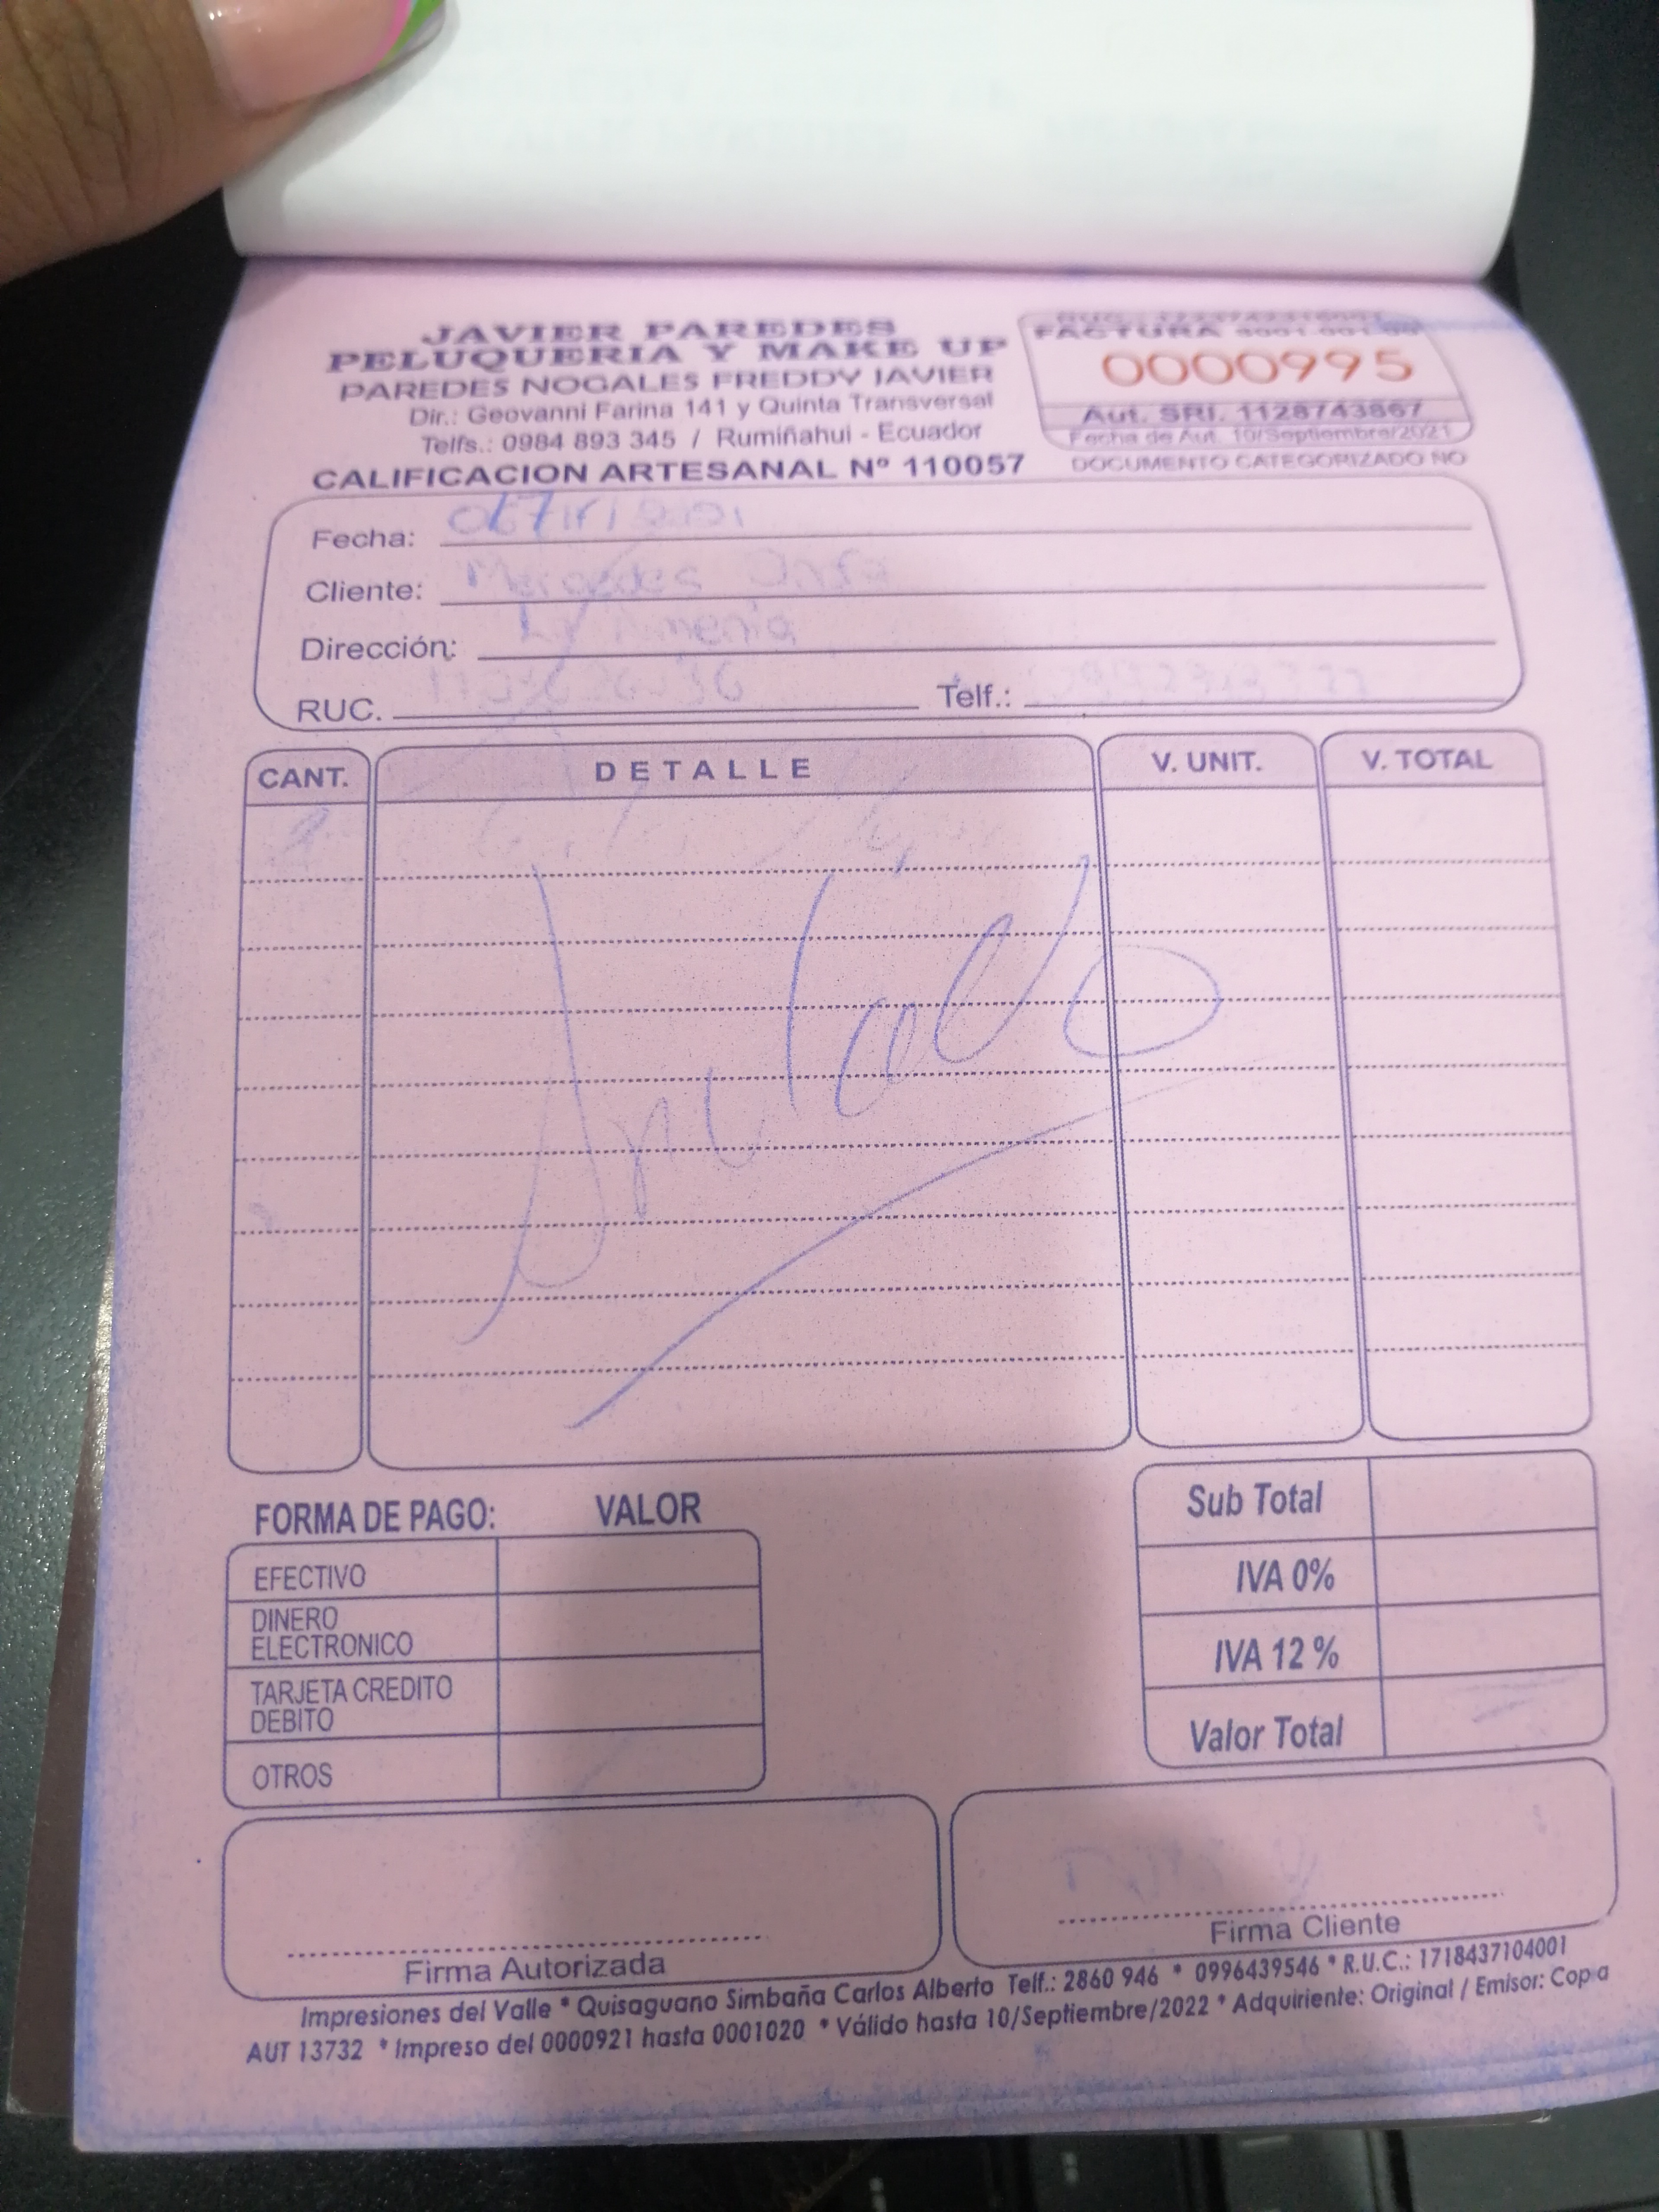 JAVIER PAREDES
PELUQUERIA Y MAKE UP
PAREDES NOGALES FREDDY JAVIER
Dir.: Geovanni Farina 141 y Quinta Transversal
Telfs.: 0984 893 345 / Rumiñahui - Ecuador
CALIFICACION ARTESANAL Nº 110057
FACTURA
0000995
Aut. SRI. 1128743867
Fecha de Aut. 10/Septiembre/2021
DOCUMENTO CATEGORIZADO NO
Fecha:
Cliente: Mercedes
Dirección: Armenia
RUC. Telf.:
CANT. DETALLE V. UNIT. V. TOTAL
1
Anulado
FORMA DE PAGO: VALOR
EFECTIVO
DINERO
ELECTRONICO
TARJETA CREDITO
DEBITO
OTROS
Sub Total
IVA 0%
IVA 12 %
Valor Total
Firma Autorizada
Firma Cliente
Impresiones del Valle * Quisaguano Simbaña Carlos Alberto Telf.: 2860 946 * 0996439546 * R.U.C.: 1718437104001
AUT 13732 * Impreso del 0000921 hasta 0001020 * Válido hasta 10/Septiembre/2022 * Adquiriente: Original / Emisor: Copia